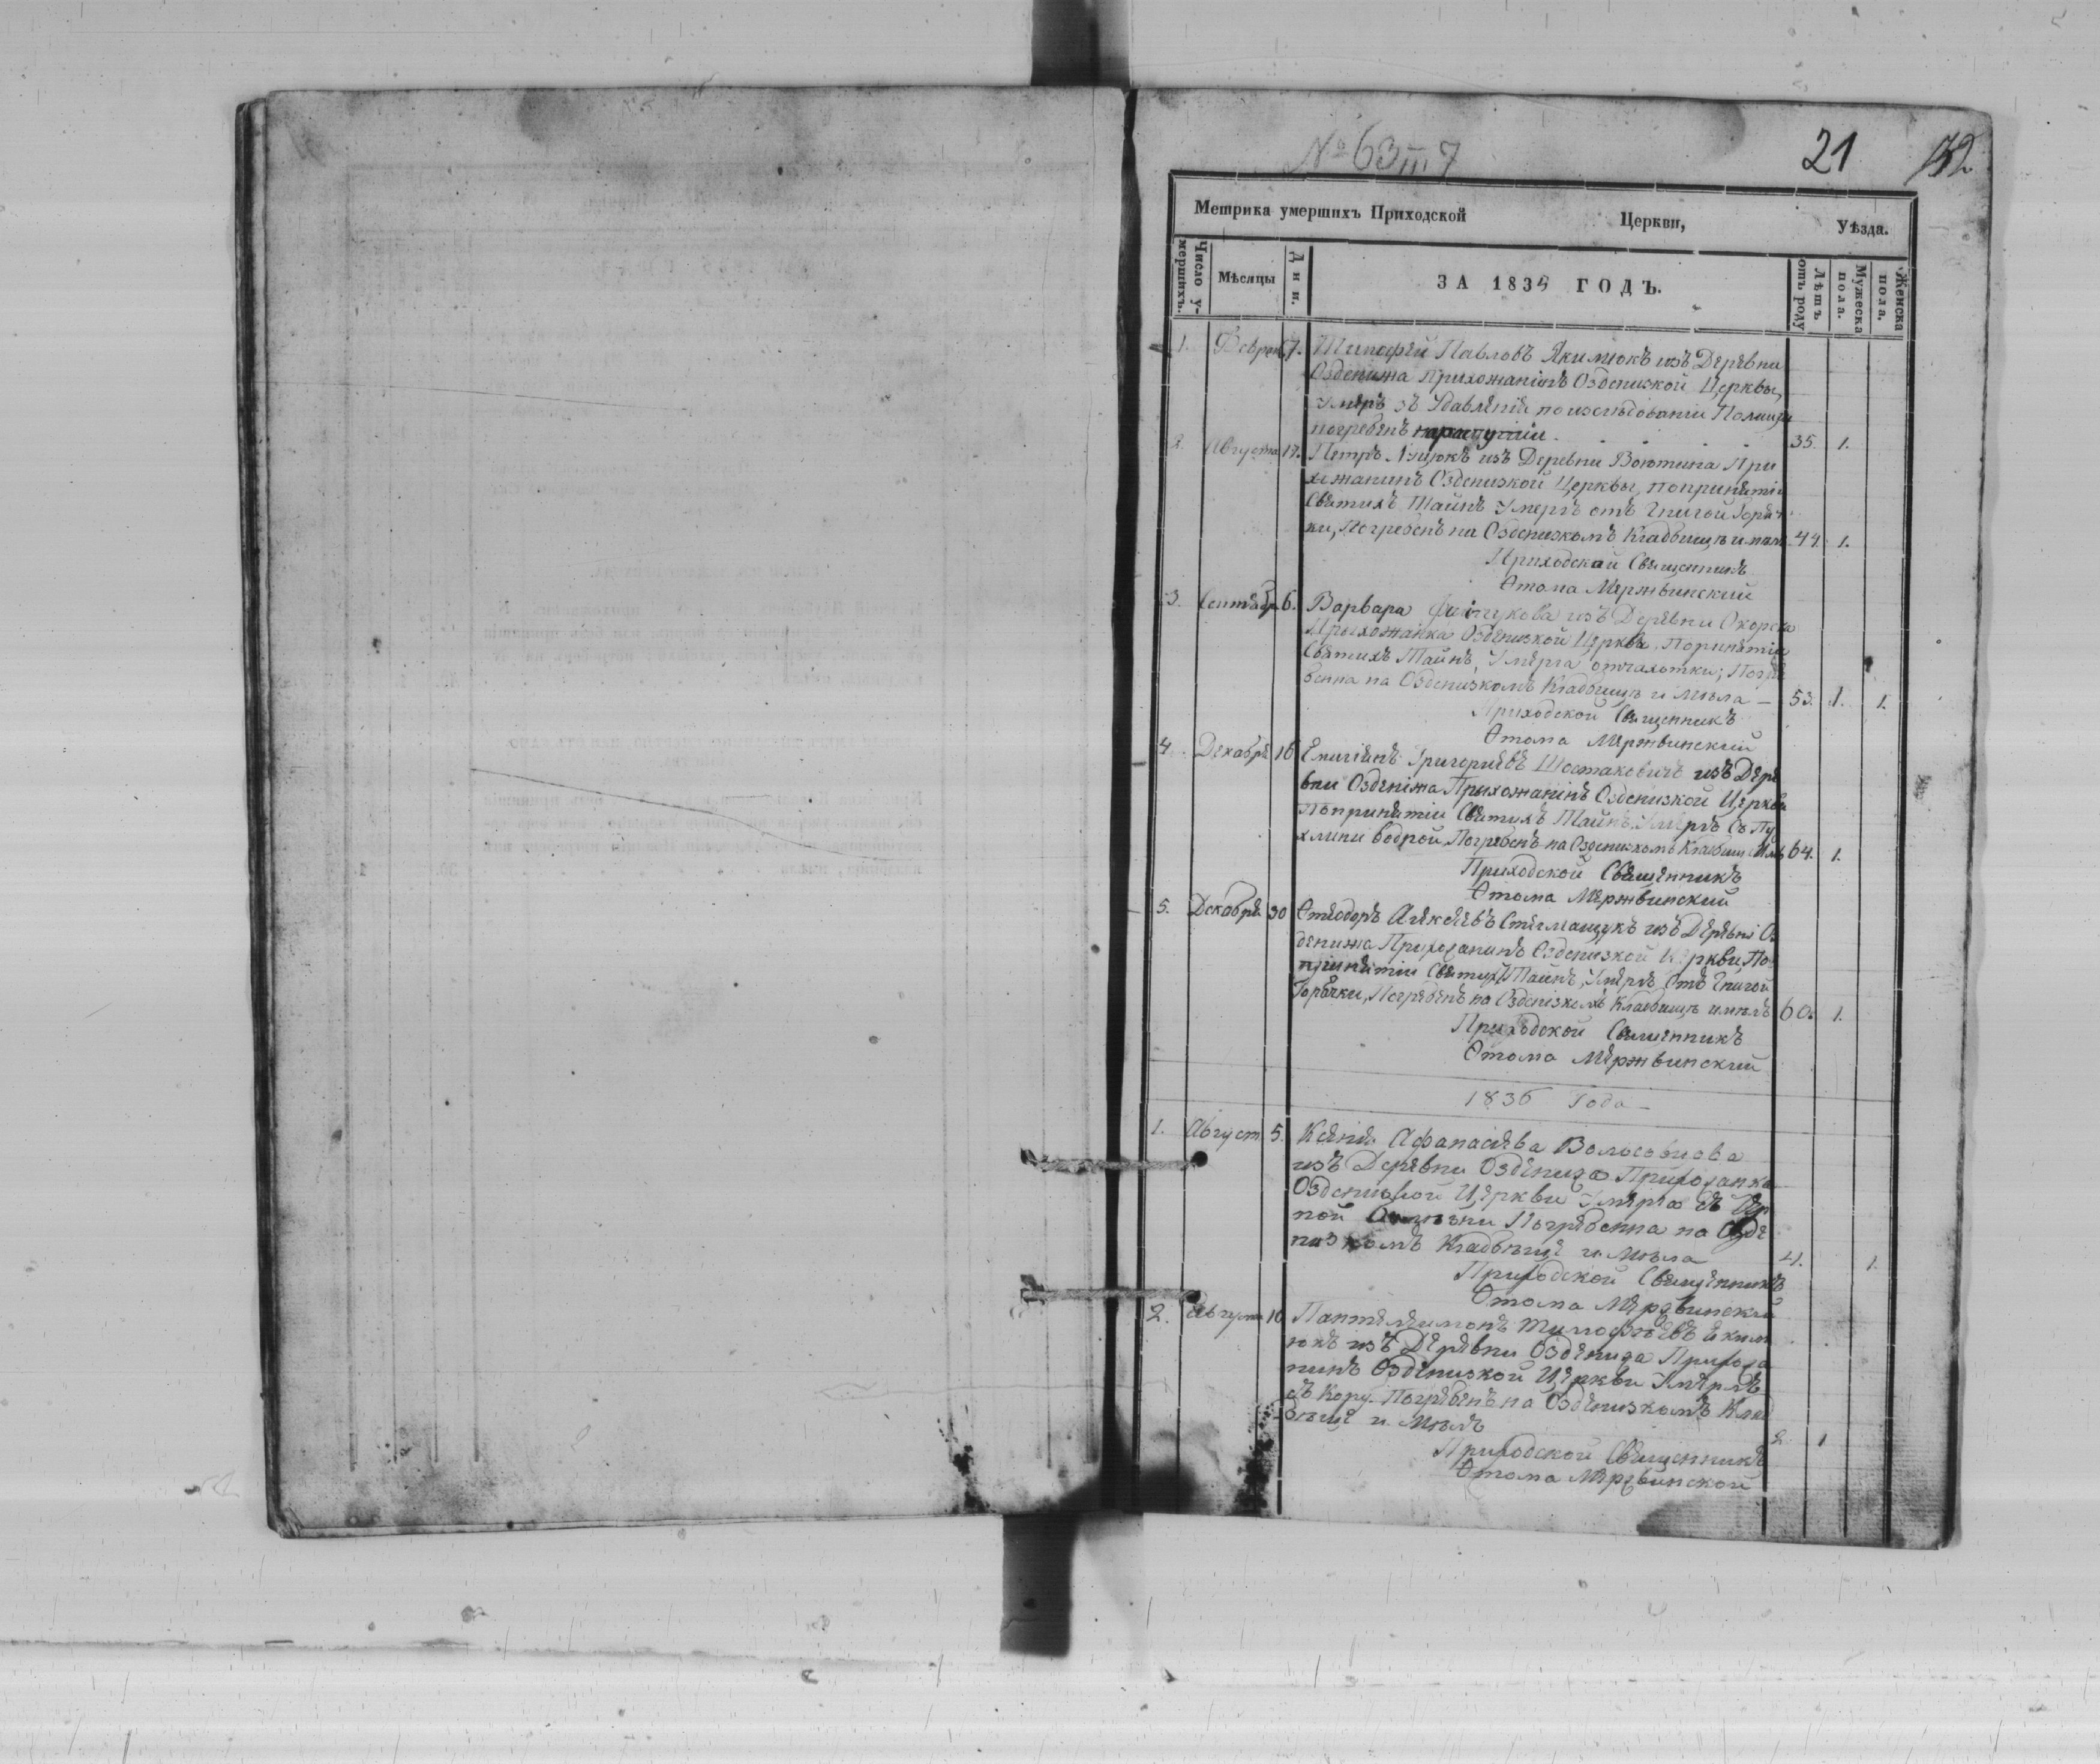 № 63 III 7
21
Метрика умершихъ Приходской Церкви, Уѣзда.
Число у-мершихъ. Мѣсяцы Дни. ЗА 1835 ГОДЪ. Лѣтъ отъ роду Мужеска пола. Женска пола.
1. Феврал 7. Тимофей Павловъ Якимюкъ изъ Деревни
Озденижа прихожанинъ Озденизкой Церквы,
Умеръ зъ Удавленія по изслѣдованіи Полиціи
погребенъ 35. 1.
2. Августа 17. Петръ изъ Деревни Воютина При
хожанинъ Озденизкой Церквы, попринятіи
Святихъ Тайнъ Умеръ отъ Гнилой Горяч
ки, Погребенъ на Озденизкомъ Кладбищѣ имѣл 44. 1.
Приходской Священникъ
Ѳтома Мержвинский
3. Сентябр 6. Варвара изъ Деревни Охорска
Прыхожанка Озденизкой Церкви. Попринятіи
Святихъ Тайнъ, Умерла отчахотки; Погре
бенна на Озденизкомъ Кладбищѣ и мѣла — 53. 1. 1.
Приходской Священникъ
Ѳтома Мержвинский
4. Декабря 16 Емилiянъ Григориевъ Шостаковичъ изъ Дере
вни Озденіжа Прыхожанінъ Озденизкой Церкви
Попринятіи Святихъ Тайнъ. Умеръ Съ Пу
хлини водной, Погребенъ на Озденизкомъ Кладбищ Имѣ 64. 1.
Приходской Священникъ
Ѳтома Мержвинский
5. Декабря 30 Ѳтеодоръ Алексеевъ Стелмащукъ изъ Деревні Оз
денижа Прихожанинъ Озденизкой Церкви, По
принятіи Святихъ Тайнъ, Умеръ Отъ Гнилой
Горячки, Погребенъ на Озденізкомъ Кладбищѣ имѣлъ 60. 1.
Приходской Священникъ
Ѳтома Мержвинский
1836 Года —
1. Август. 5. Ксенія Афанасіева Волосовцова
изъ Деревни Озденижа Прихожанка
Озденизкой Церкви Умерла съ
ной Погребенна на Озде
низкомъ Кладбище и мѣла 4. 1.
Приходской Священникъ
Ѳтома Мержвинской
2. Августа 10 Пантелеимонъ Тимофѣевъ Яким
юкъ изъ Деревни Озденижа Прихожа
нинъ Озденизкой Церкви Умерлъ
съ Кору. Погребенъ на Озденизкомъ Клад
бище и мѣлъ 2. 1
Приходской Священникъ
Ѳтома Мержвинской